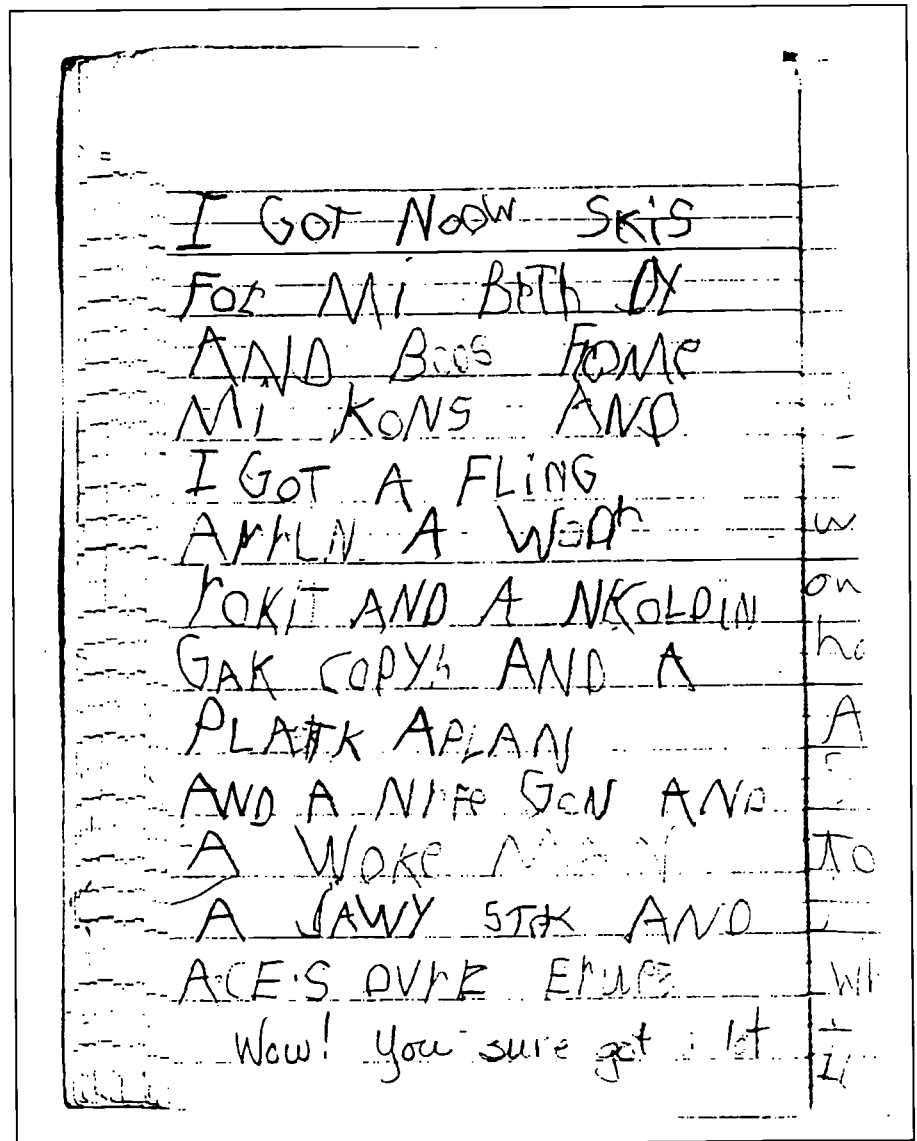 I GOT NOOW SKiS
FOr Mi BrTh DY
AND BOOS FOMe
Mi KONS AND
I GOT A FLiNG
ArPLN A WODr
rOKiT AND A NKOLDiN
GAK COPYh AND A
PLATK APLAN
AND A NiFe GON AND
A WOKe
A JAWY STIK AND
ACE'S OVrE
Wow! You sure got a lot
on
ho
A
To